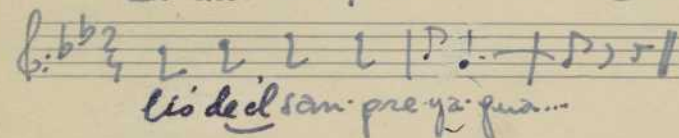 lió de él san-pre-ya-gua...